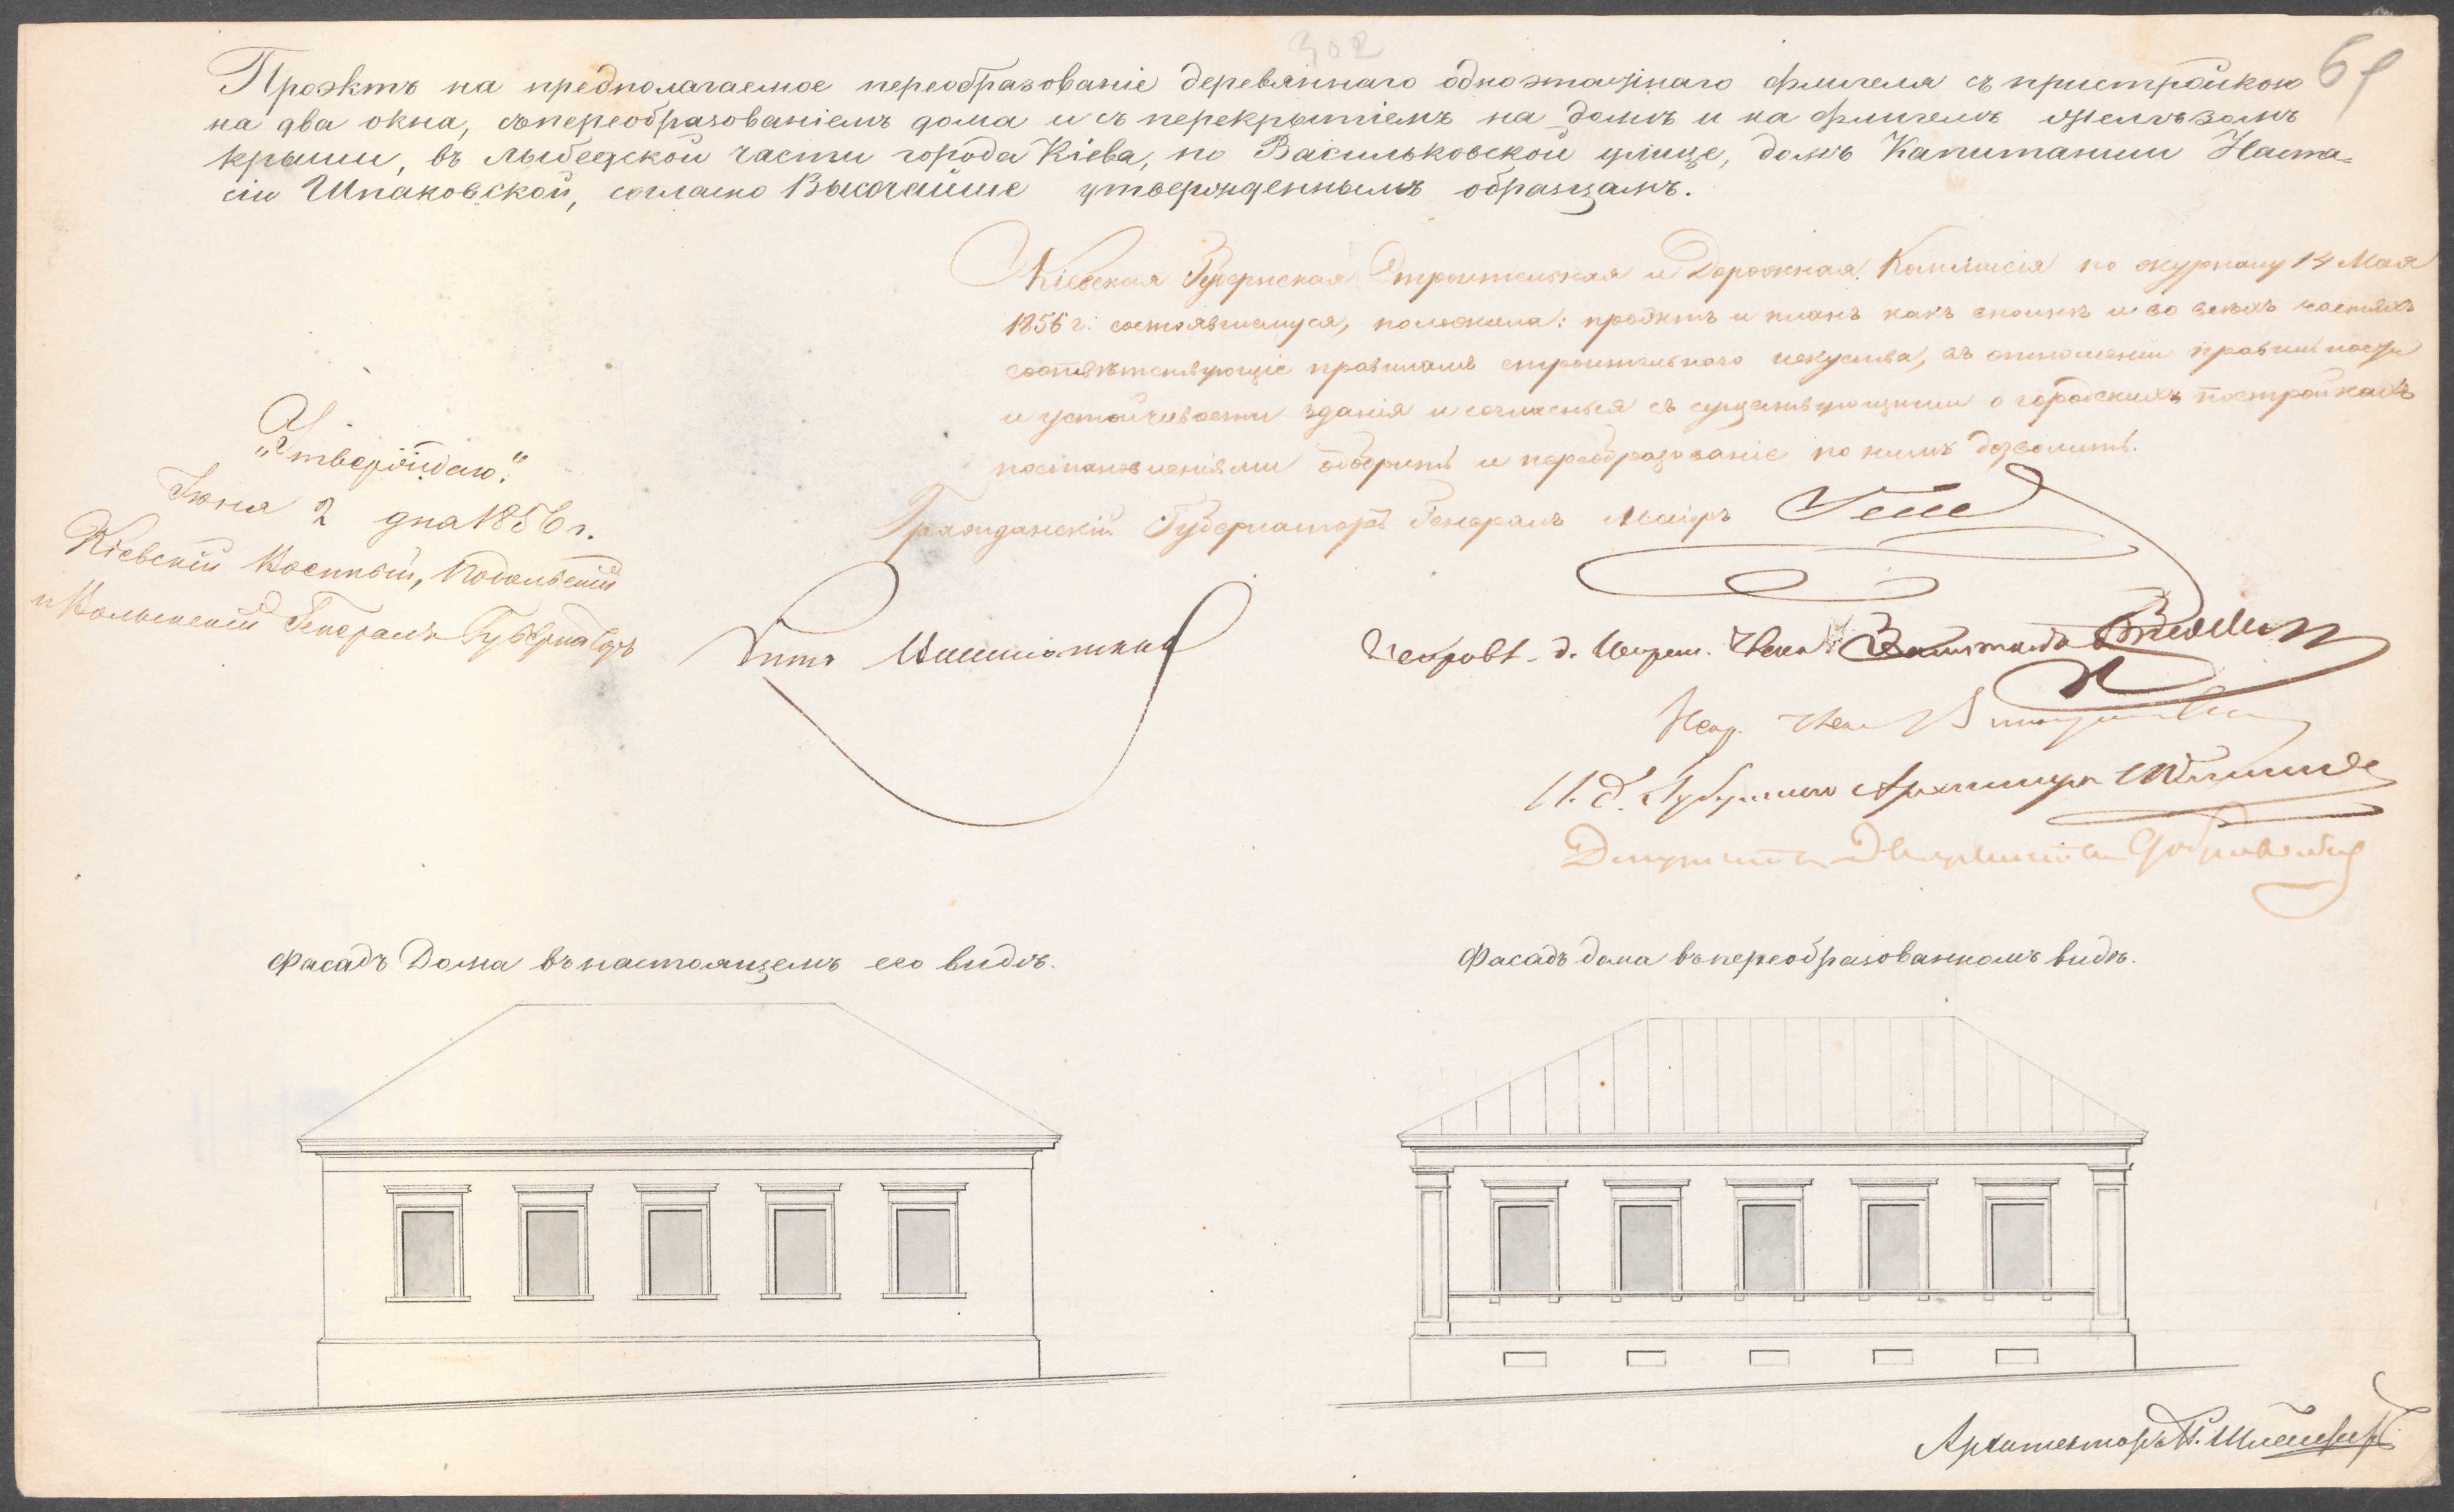 302
61
Проэктъ на предполагаемое переобразованіе деревяннаго одноэтажнаго флигеля съ пристройкою
на два окна, съ переобразованіемъ дома и съ перекрытіемъ на домѣ и на флигелѣ желѣзомъ
крыши, въ лыбедской части города Кіева, по Васильковской улице, домъ Капитанши Наста-
сіи Шпаковской, согласно Высочайше утвержденнымъ образцамъ.
Кіевская Губернская Строительная и Дорожная Коммисія по журналу 14 Мая
1856 г. состоявшемуся, положила: проэктъ и планъ какъ вполнѣ и во всѣхъ частяхъ
соотвѣтствующіе правиламъ строительного искуства, въ отношеніи правильности
и устойчивости зданія и согласныя съ существующими о городскихъ постройкахъ
постановленіями одобрить и переобразованіе по нимъ дозволить.
„Утверждаю.“
Іюня 2 дня 1856 г.
Кіевскій Военный, Подольскій
и Волынскій Генералъ Губернаторъ
Гражданскій Губернаторъ Генералъ Маіоръ Гессе
Архитекторъ
И. д. Губернскаго Архитектора
Депутатъ Дворянства
Фасадъ Дома въ настоящемъ его видѣ.
Фасадъ дома въ переобразованномъ видѣ.
Архитекторъ П. Шлейферъ